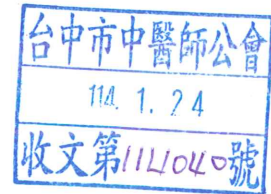 台中市中醫師公會
114. 1. 24
收文第1141040號